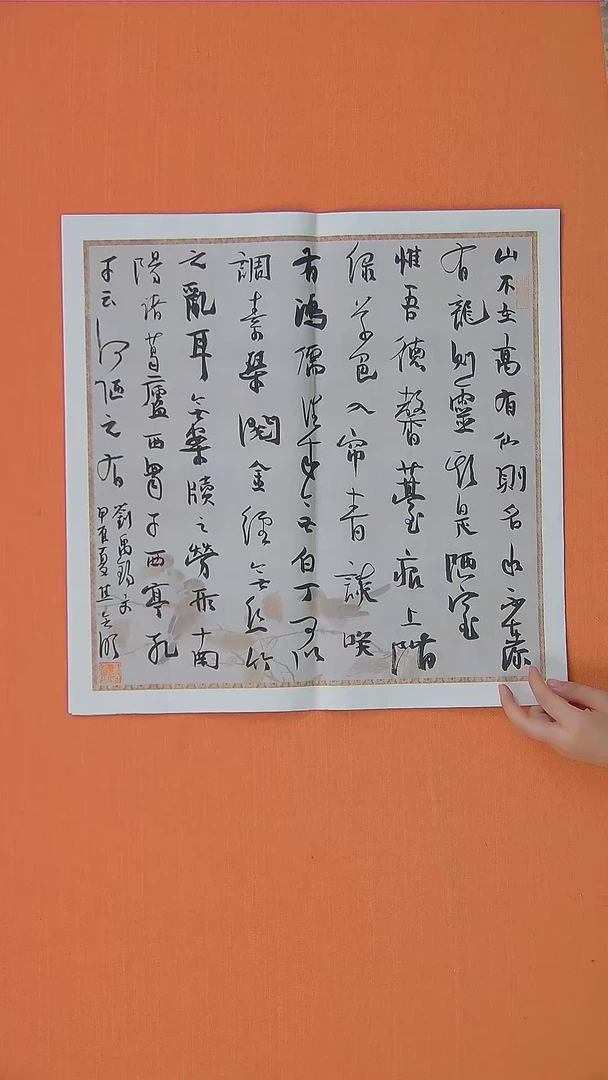 山不在高有仙則名水不在深
有龍則靈斯是陋室
惟吾德馨薹痕上階
緑草色入帘青談咲
有鴻儒往来无白丁可以
調素琴閱金經无丝竹
之亂耳无案牘之勞形南
陽諸葛廬西蜀子亭孔
子云何陋之有
劉禹錫文
甲夏